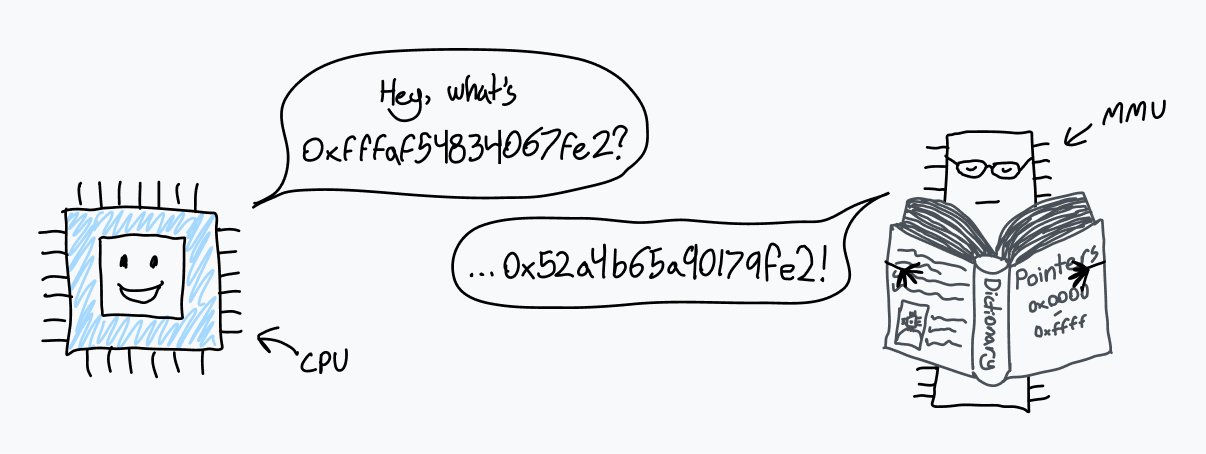 Hey, what's
0xfffaf54834067fe2?
...0x52a4b65a90179fe2!
CPU
MMU
Dictionary
Pointers
0x0000
-
0xffff